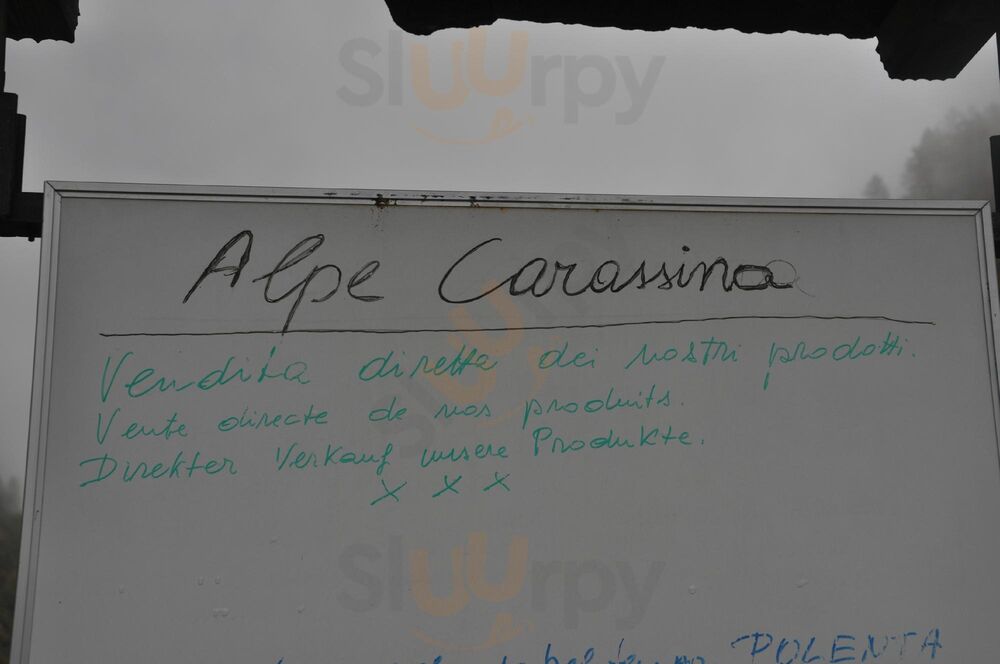 Sluurpy
Alpe Carassina
Vendita diretta dei nostri prodotti.
Vente directe de nos produits.
Direkter Verkauf unsere Produkte.
x x x
Sluurpy
POLENTA